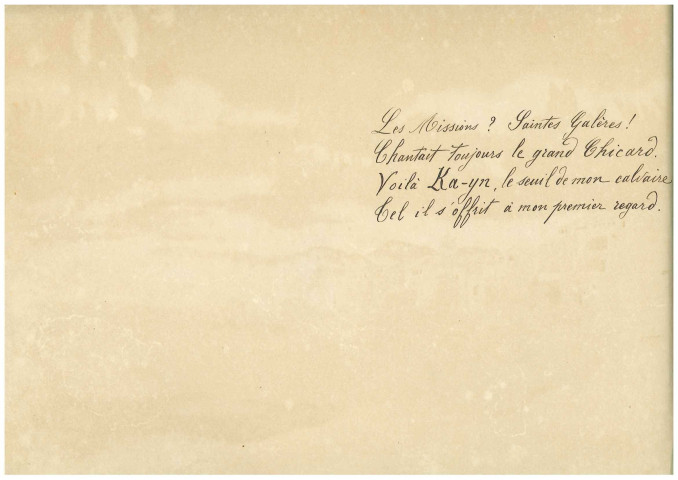 Les Missions ? Saintes Galères !
Chantait toujours le grand Chicard.
Voilà Ka-yn, le seuil de mon calvaire
Tel il s'offrit à mon premier regard.